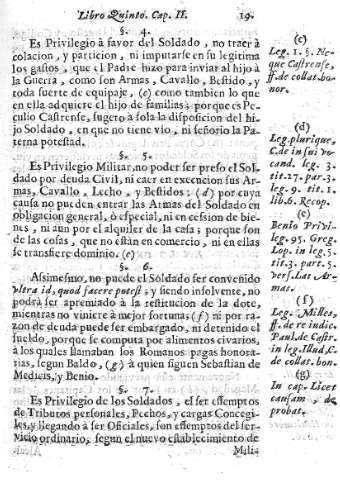 Libro Quinto. Cap. II. 19.
§. 4.
Es Privilegio à favor del Soldado, no traer à
colacion, y particion, ni imputarse en su legitima
los gastos, que el Padre hizo para inviar al hijo à
la Guerra, como son Armas, Cavallo, Bestido, y
toda suerte de equipaje, (c) como tambien lo que
en ella adquiere el hijo de familias; porque es Pe-
culio Castrense, sugeto à sola la disposicion del hi-
jo Soldado, en que no tiene vio, ni señorio la Pa-
terna potestad.
§. 5.
Es Privilegio Militar, no poder ser preso el Sol-
dado por deuda Civil, ni caer en execucion sus Ar-
mas, Cavallo, Lecho, y Bestidos: (d) por cuya
causa no pueden entrar las Armas del Soldado en
obligacion general, ò especial, ni en cession de bie-
nes, ni aun por el alquiler de la casa; porque son
de las cosas, que no están en comercio, ni en ellas
se transfiere dominio. (e)
§. 6.
Assimesmo, no puede el Soldado ser convenido
vltra id, quod facere potest; y siendo insolvente, no
podrà ser apremiado à la restitucion de la dote,
mientras no viniere à mejor fortuna; (f) ni por ra-
zon de deuda puede ser embargado, ni detenido el
sueldo, porque se computa por alimentos civarios,
à los quales llamaban los Romanos pagas honora-
rias, segun Baldo, (g) à quien siguen Sebastian de
Medicis, y Benio.
§. 7.
Es Privilegio de los Soldados, el ser essemptos
de Tributos personales, Pechos, y cargas Concegi-
les, y llegando à ser Oficiales, son essemptos del ser-
vicio ordinario, segun el nuevo establecimiento de
Mili-
(c)
Leg. 1. §. Ne-
que Castrense,
ff. de collat. bo-
nor.
(d)
Leg. plurique,
C. de in jus vo-
cand. leg. 3.
tit. 27. par. 3.
leg. 9. tit. 1.
lib. 6. Recop.
(e)
Benio Privi-
leg. 95. Greg.
Lop. in leg. 5.
tit. 3. part. 5.
vers. Las Ar-
mas.
(f)
Leg. Milles,
ff. de re indic.
Paul. de Castr.
in leg. Illud, C.
de collat. bon.
(g)
In cap. Licet
causam, de
probat.